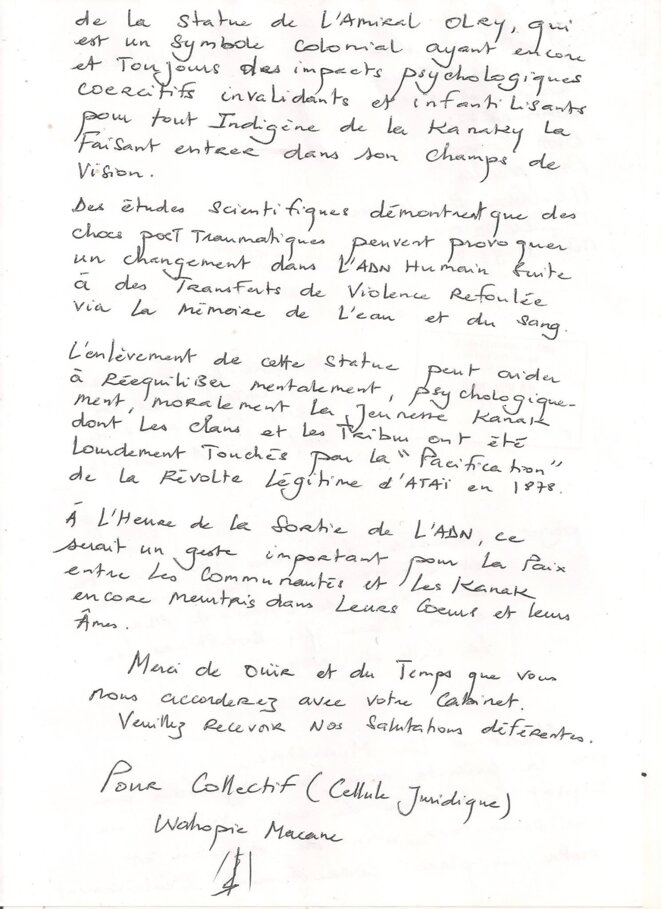 de la Statue de L'Amiral OLRY, qui
est un Symbole Colonial ayant encore
et Toujours des impacts psychologiques
coercitifs invalidants et infantilisants
pour tout Indigène de la Kanaky La
Faisant entrer dans son champs de
Vision.
Des études Scientifiques démontrent que des
chocs post Traumatiques peuvent provoquer
un changement dans L'ADN Humain Suite
à des Transferts de Violence Refoulée
via La Mémoire de L'eau et du Sang.
L'enlèvement de cette Statue peut aider
à Rééquilibrer mentalement, psychologique-
ment, moralement La Jeunesse Kanak
dont Les Clans et les Tribus ont été
Lourdement Touchés par la "Pacification"
de la Révolte Légitime d'ATAÏ en 1878.
À L'Heure de la Sortie de L'ADN, ce
serait un geste important pour la Paix
entre Les Communautés et Les Kanak
encore meurtris dans Leurs Coeurs et leurs
Âmes.
Merci de Ouïr et du Temps que vous
nous accorderez avec votre Cabinet.
Veuillez Recevoir Nos Salutations déférentes.
Pour Collectif (Cellule Juridique)
Wahopie Macane